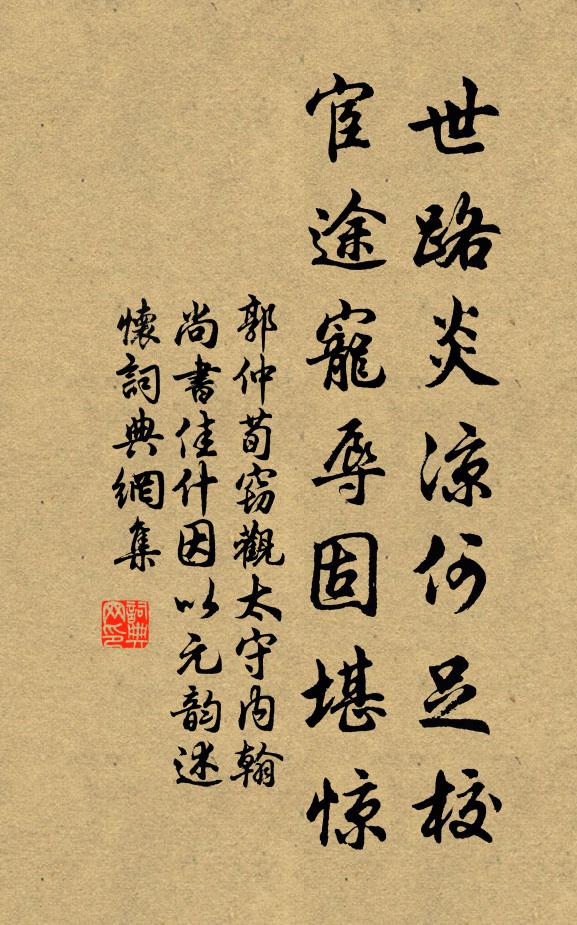 世路炎涼何足校
宦途寵辱固堪惊
郭仲荀窃觀太守内翰
尚書佳什因以元韵述
懷詞典網集
詞典
网印